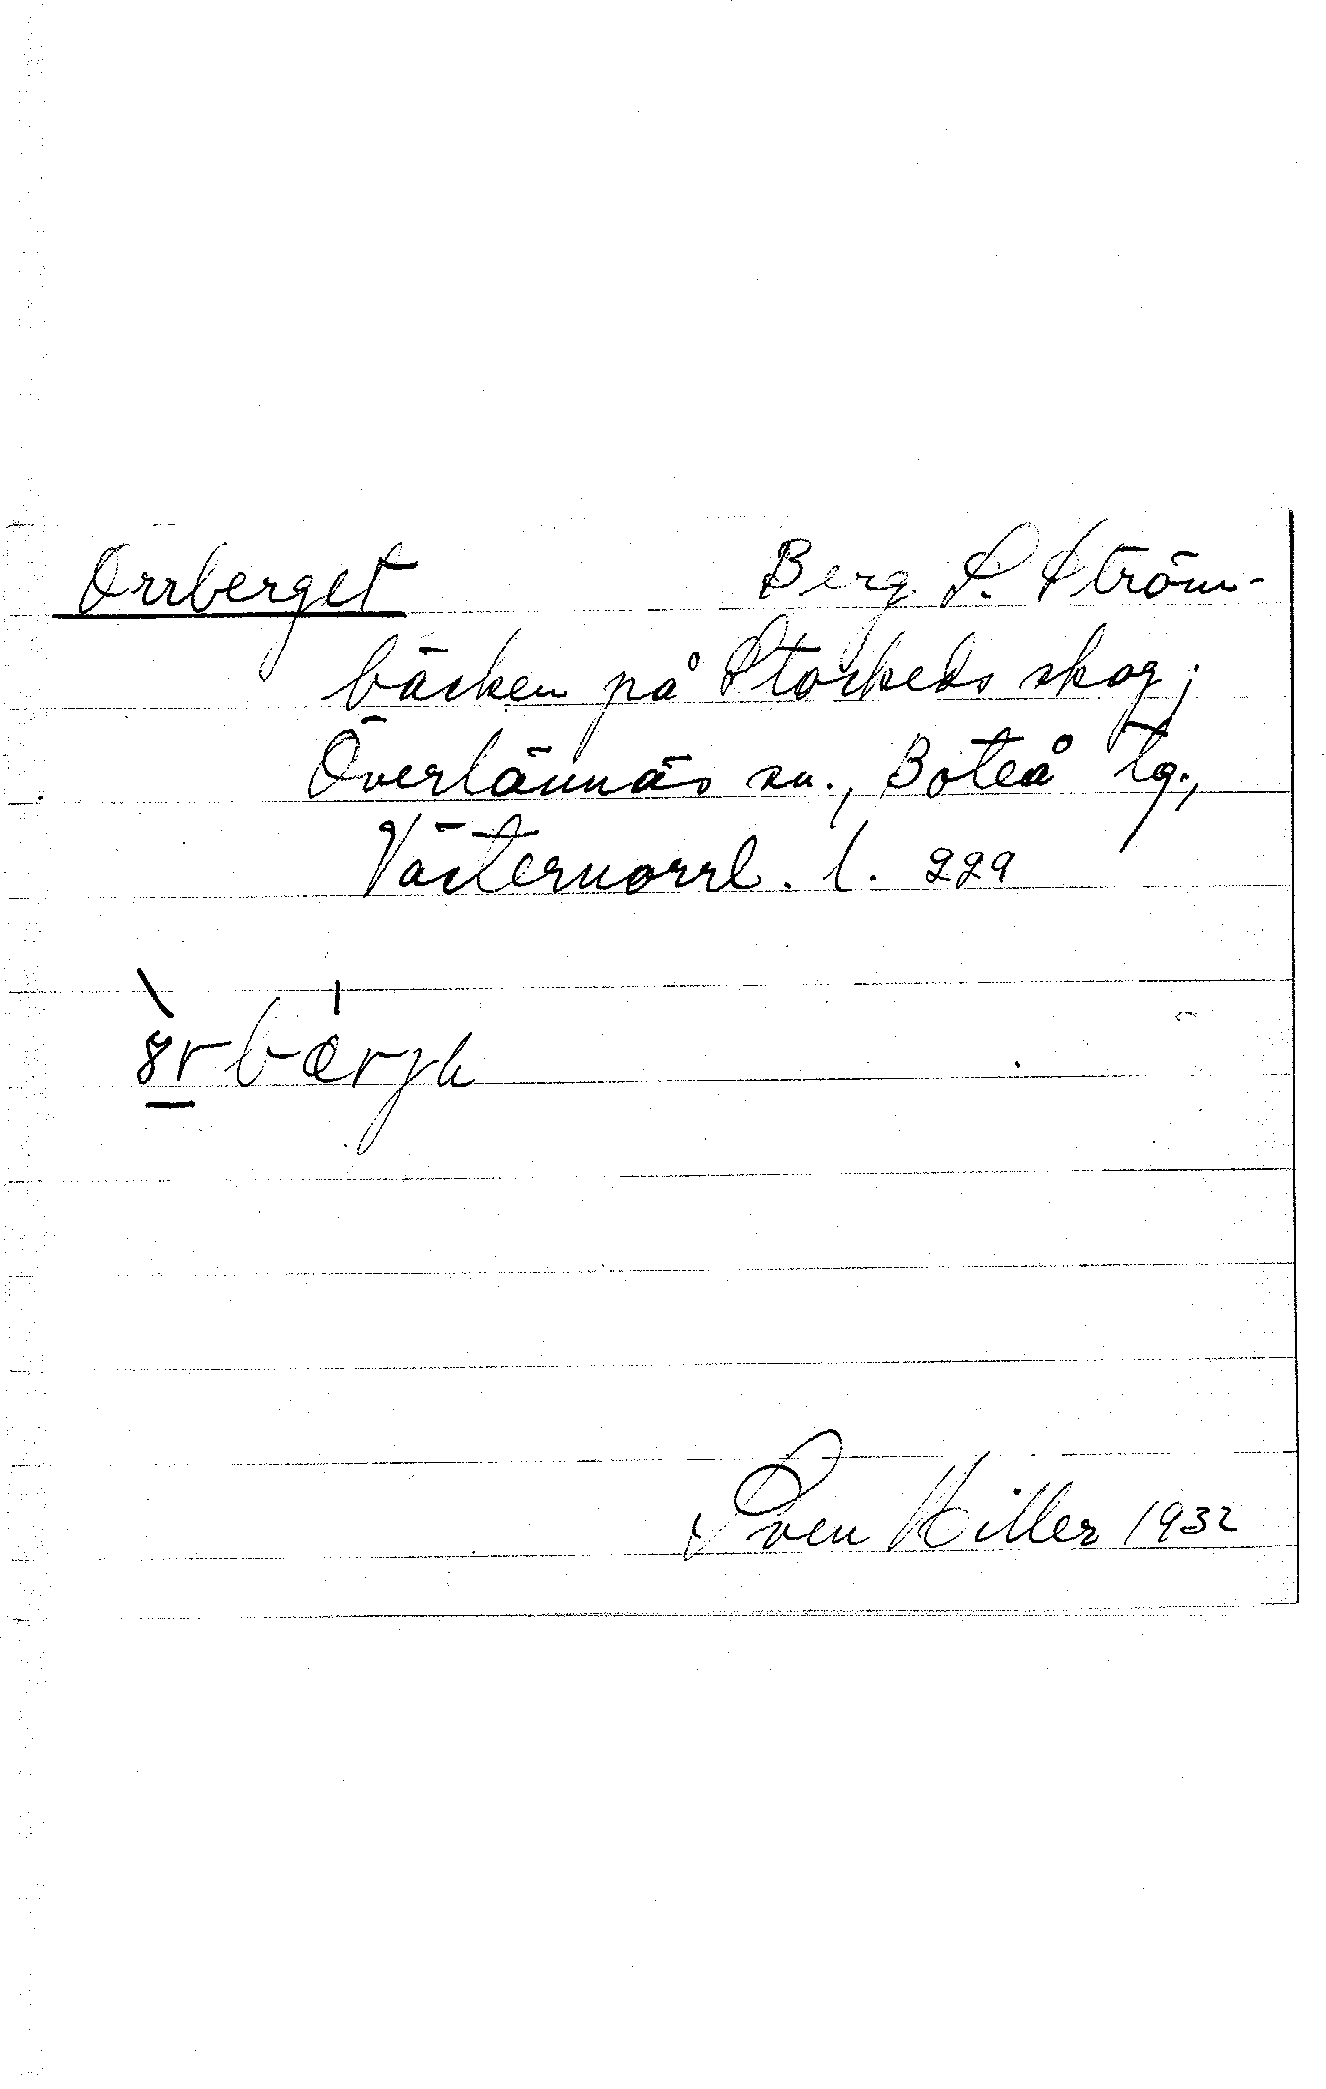 Orrberget Berg S. Ström-
bäcken på Storkeds skog;
Överlännäs sn., Boteå tg.,
Västernorrl. l. 229
Sven Hiller 1932